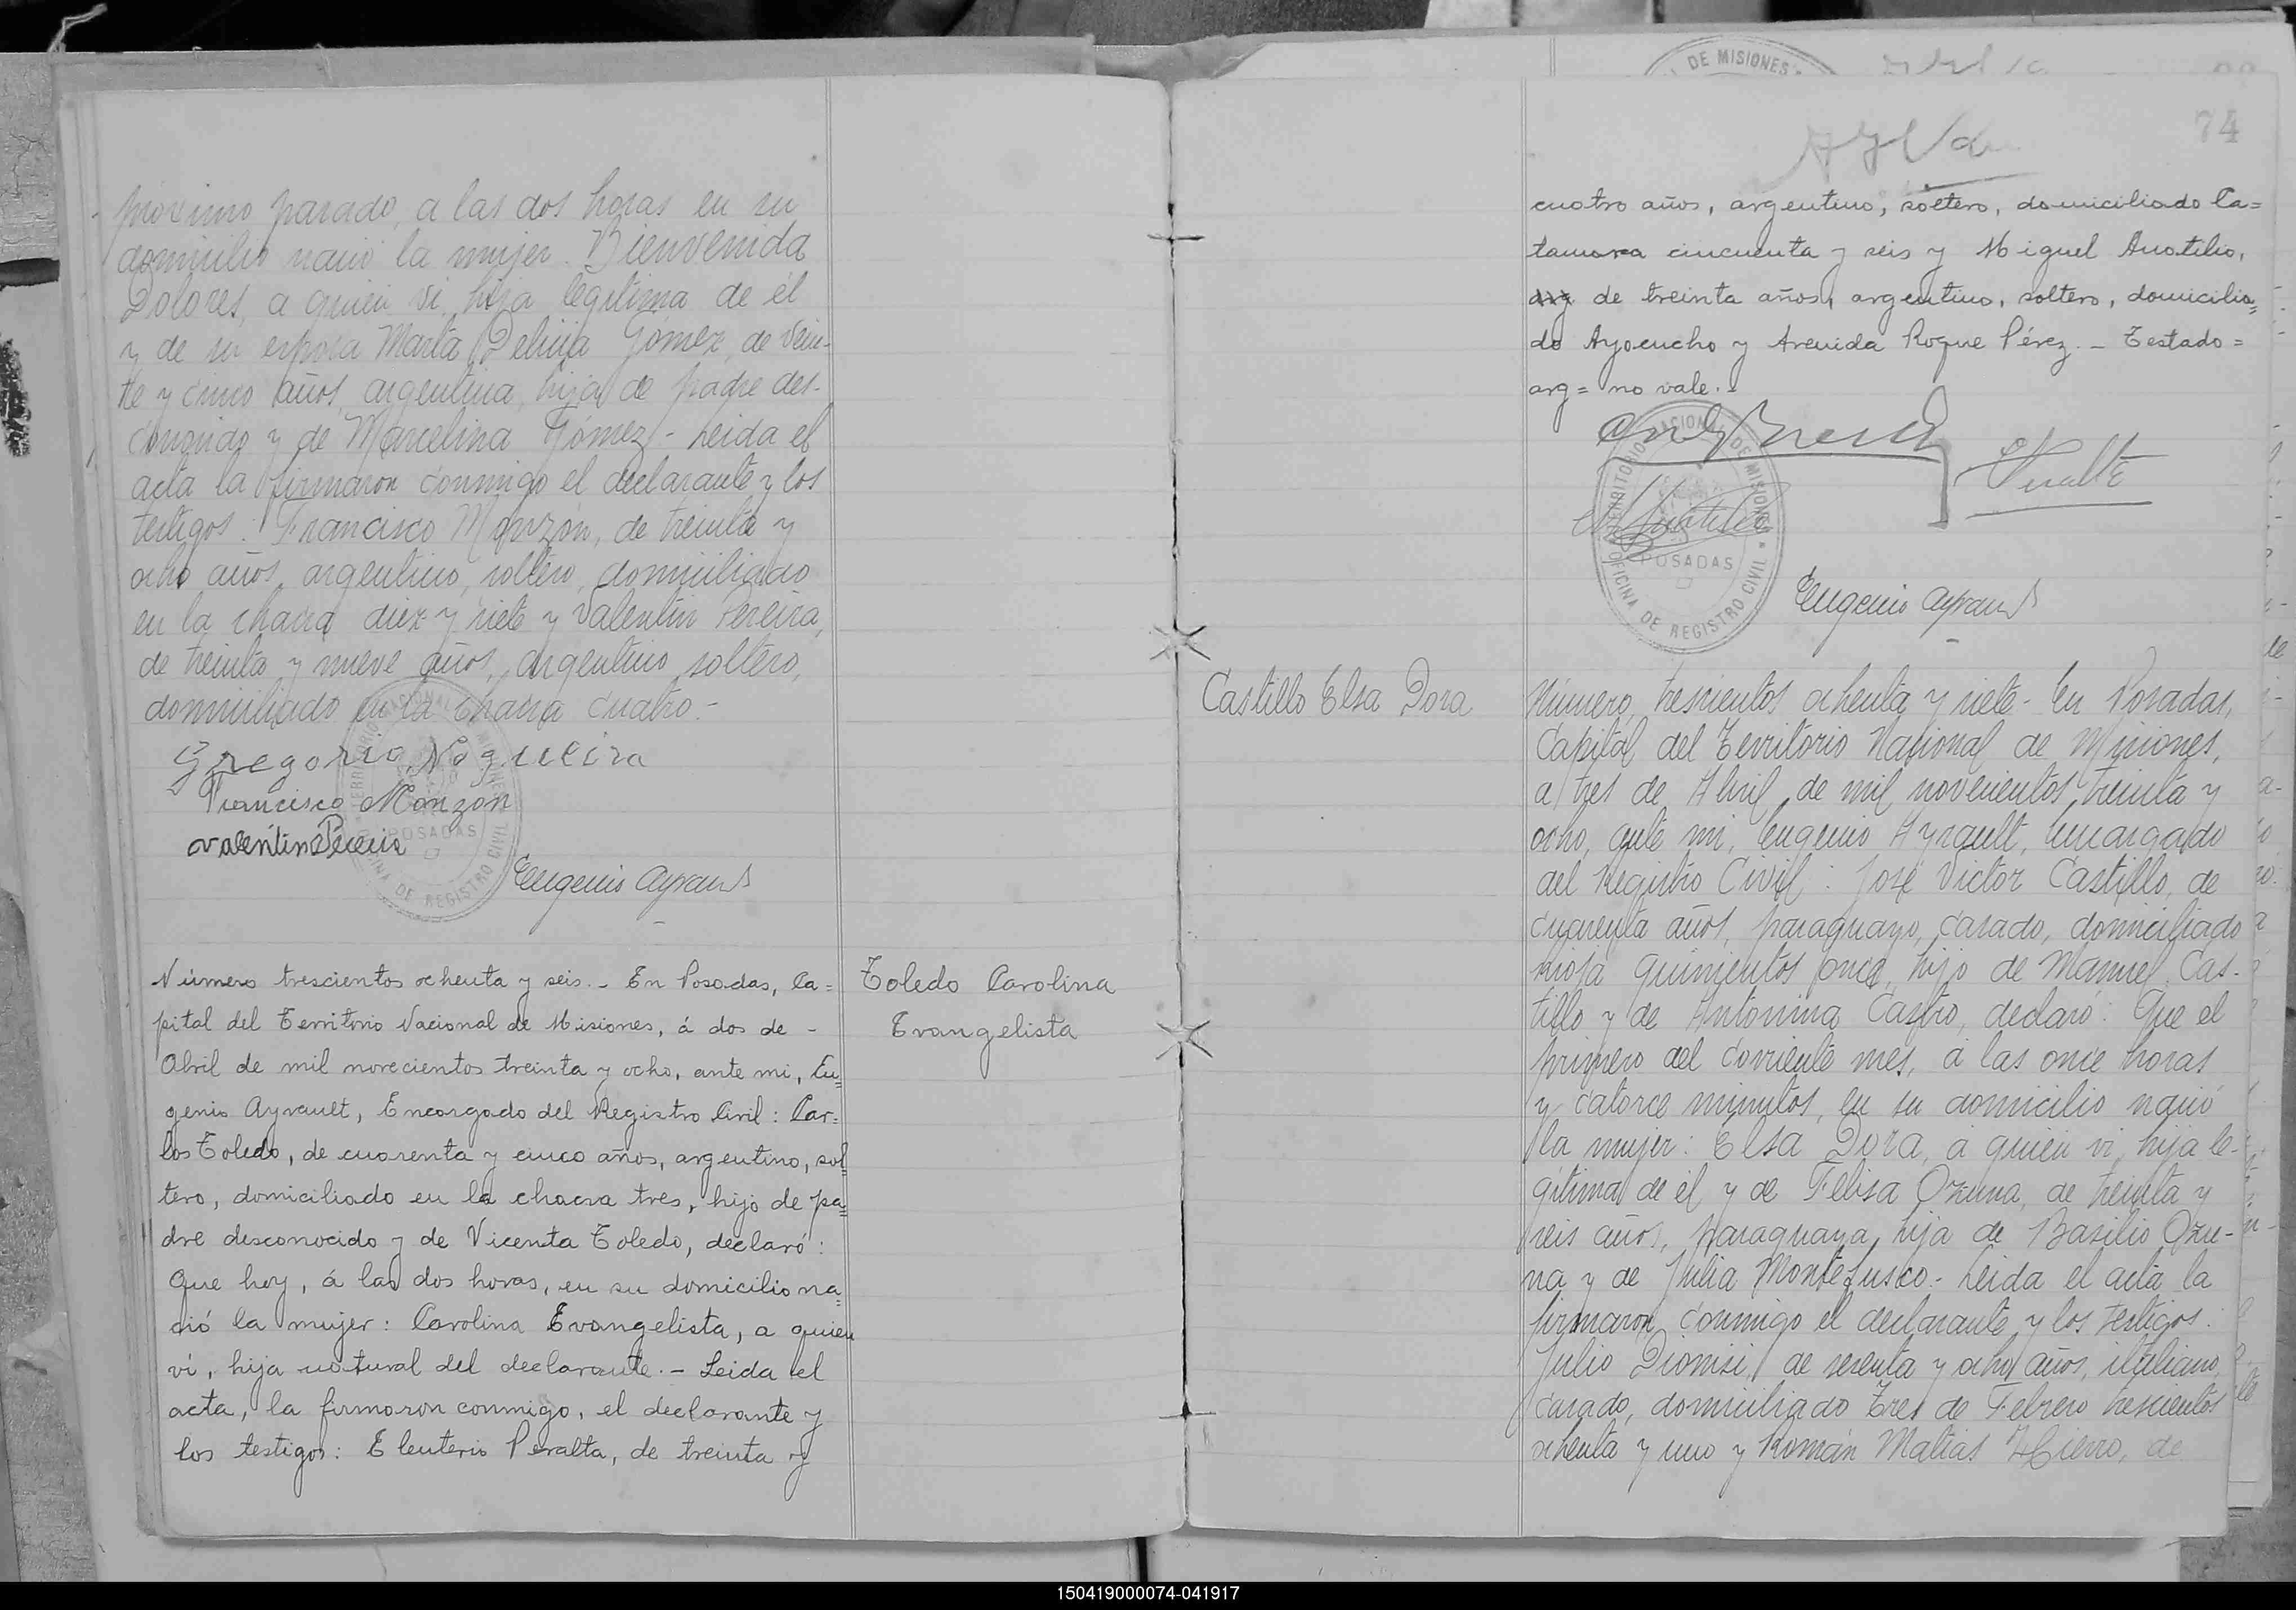 próximo pasado, a las dos horas en su
domicilio nació la mujer: Bienvenida
Dolores, a quien vi, hija legítima de él
y de su esposa Marta Delicia Gómez, de vein-
te y cinco años, argentina, hija de padre des-
conocido y de Marcelina Gómez.- Leida el
acta la firmaron conmigo el declarante y los
testigos: Francisco Monzón, de treinta y
ocho años, argentino, soltero, domiciliado
en la chacra diez y siete y Valentín Pereira,
de treinta y nueve años, argentino, soltero,
domiciliado en la chacra cuatro.-
Gregorio Nogueira
Francisco Monzon
Valentin Pereira
Eugenio Ayrault
TERRITORIO NACIONAL DE MISIONES
POSADAS
OFICINA DE REGISTRO CIVIL
Número trescientos ochenta y seis.- En Posadas, Ca=
pital del Territorio Nacional de Misiones, á dos de -
Abril de mil novecientos treinta y ocho, ante mi, Eu=
genio Ayrault, Encargado del Registro Civil: Car=
los Toledo, de cuarenta y cinco años, argentino, sol=
tero, domiciliado en la chacra tres, hijo de pa=
dre desconocido y de Vicenta Toledo, declaró:
Que hoy, á las dos horas, en su domicilio na=
ció la mujer: Carolina Evangelista, a quien
vi, hija natural del declarante.- Leida el
acta, la firmaron conmigo, el declarante y
los testigos: Eleuterio Peralta, de treinta y
Toledo Carolina
Evangelista
DE MISIONES
74
cuatro años, argentino, soltero, domiciliado Ca=
tamarca cincuenta y seis y Miguel Anotilio,
arg de treinta años, argentino, soltero, domicilia=
do Ayacucho y Avenida Roque Pérez.- Testado=
arg= no vale.-
TERRITORIO NACIONAL DE MISIONES
POSADAS
OFICINA DE REGISTRO CIVIL
Eugenio Ayrault
Castillo Elsa Dora
Número trescientos ochenta y siete- En Posadas,
Capital del Territorio Nacional de Misiones,
a tres de Abril de mil novecientos treinta y
ocho, ante mi, Eugenio Ayrault, Encargado
del Registro Civil: José Victor Castillo, de
cuarenta años, paraguayo, casado, domiciliado
Rioja quinientos once, hijo de Manuel Cas-
tillo y de Antonina Castro, declaró: Que el
primero del corriente mes, á las once horas
y catorce minutos, en su domicilio nació
la mujer: Elsa Dora, á quien vi, hija le-
gítima de él y de Felisa Ozuna, de treinta y
seis años, paraguaya, hija de Basilio Ozu-
na y de Julia Montefusco.- Leida el acta la
firmaron conmigo el declarante y los testigos:
Julio Dionisi, de sesenta y ocho años, italiano,
casado, domiciliado Tres de Febrero trescientos
ochenta y uno y Román Matias Hierro, de
150419000074-041917